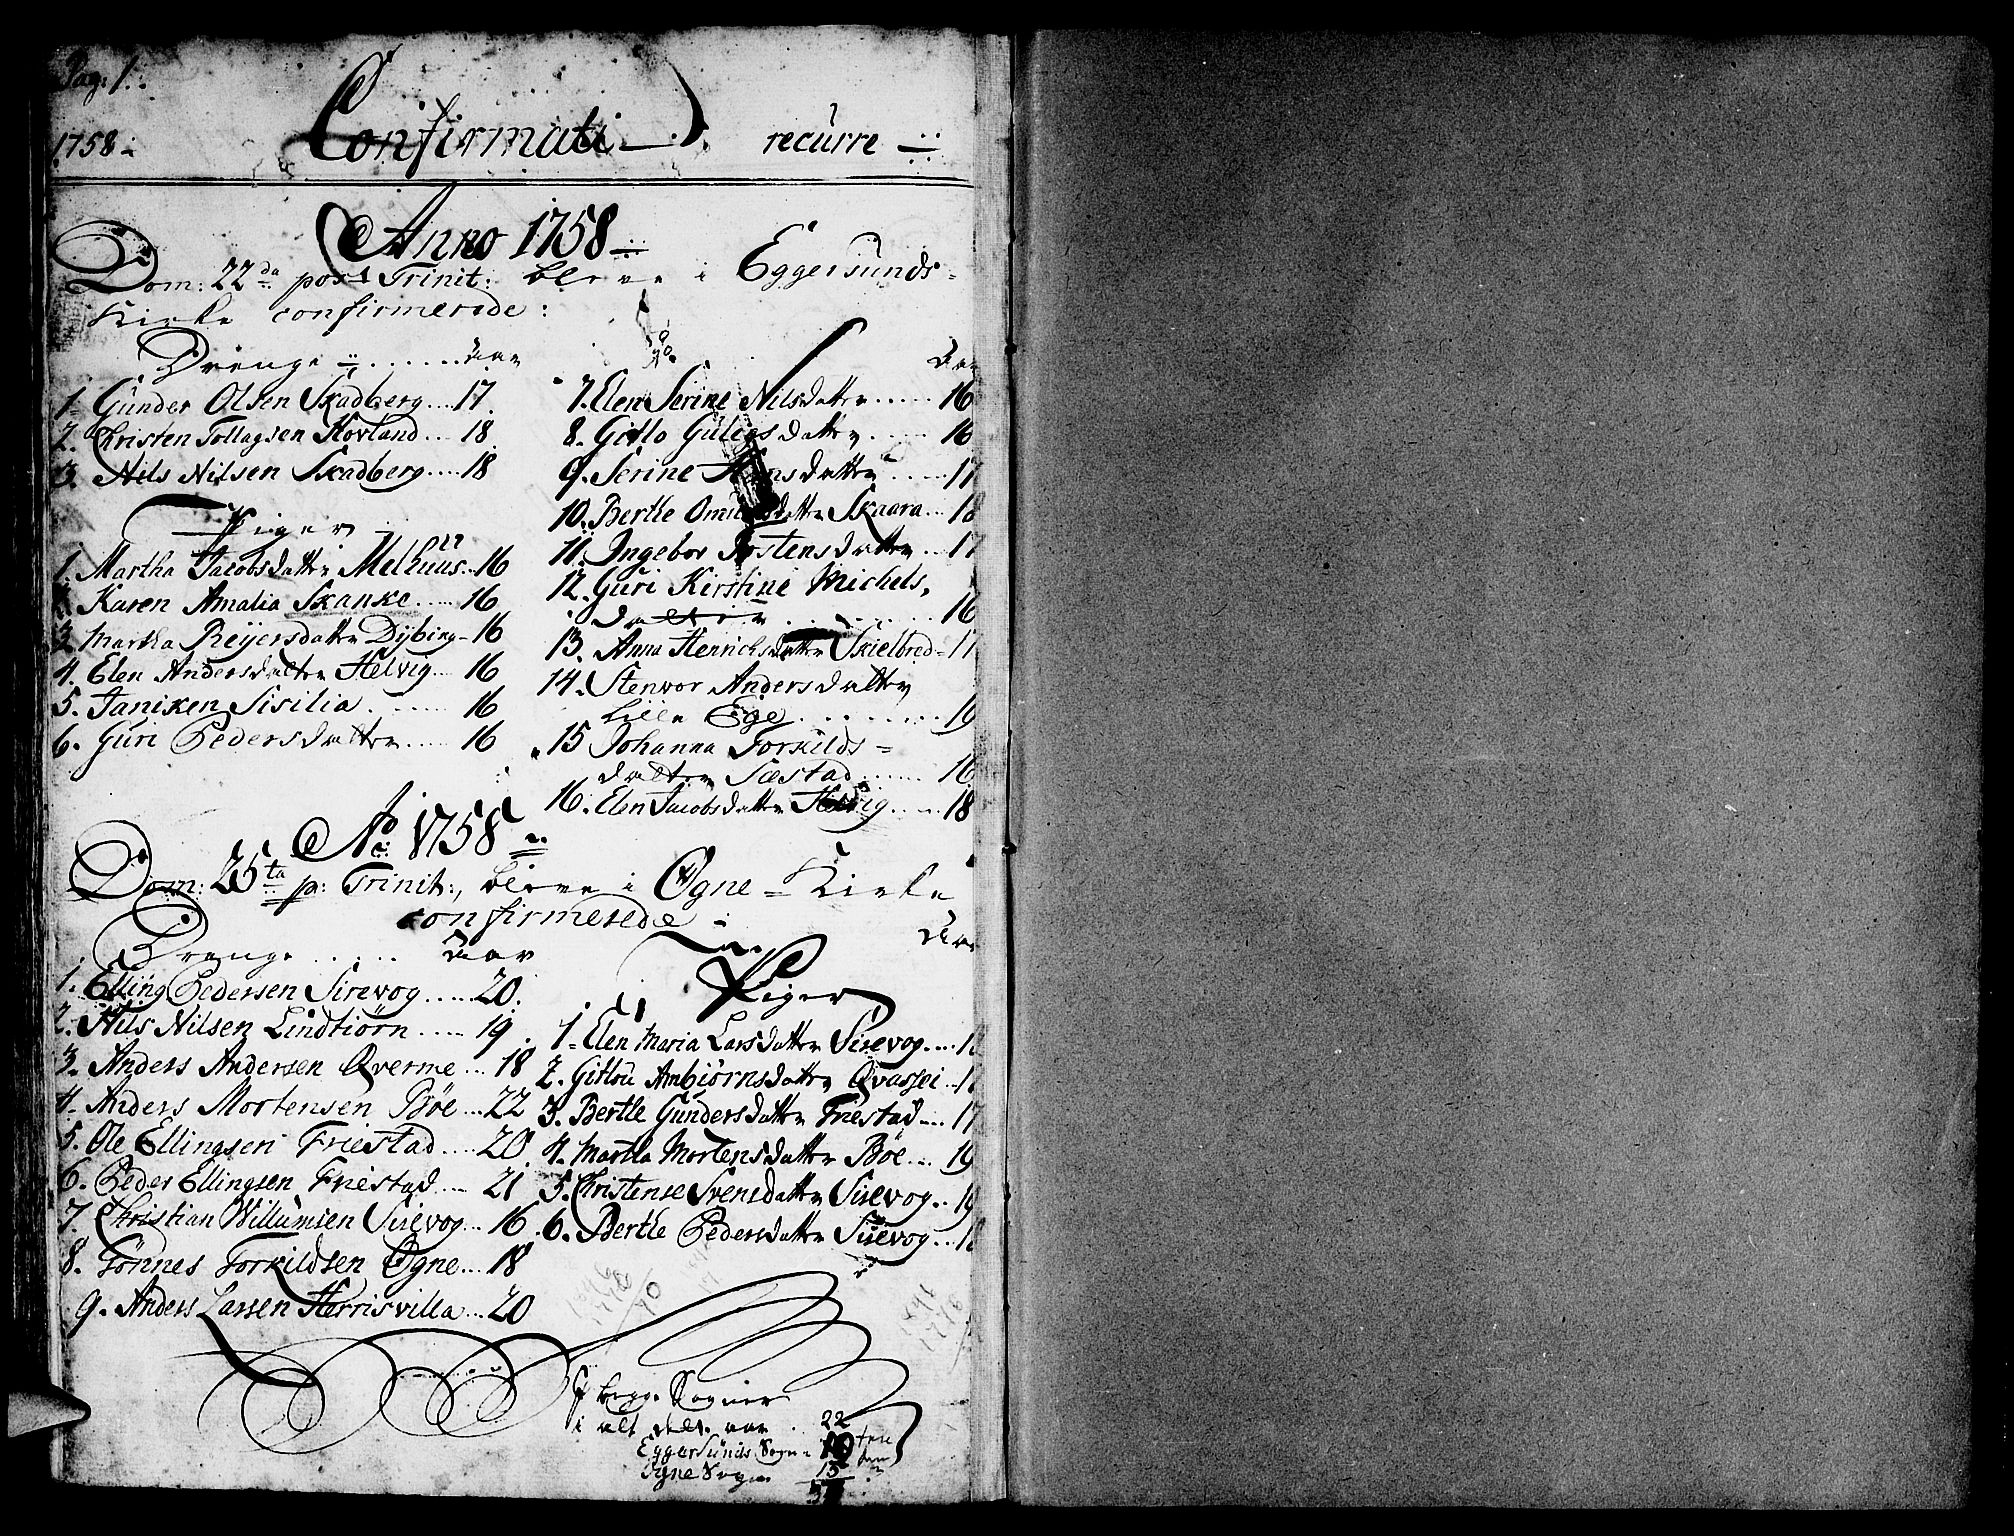 Pag. 1.
1758
Confirmati recurre
Anno 1758
Dom: 22da post Trinit: bleve i Eggersunds=
Kirke confirmerede:
Drenge ...... Aar
1. Gunder Olsen Skadberg .... 17.
2. Christen Tollagsen Hovland ... 18.
3. Nils Nilsen Skadberg .... 18
Piger
1. Martha Jacobsdatter Melhuus .. 16
2. Karen Amalia Skanke ..... 16
3. Martha Reijersdatter Dybing - 16
4. Elen Andersdatter Helvig ... 16
5. Janiken Sisilia ...... 16
6. Guri Pedersdatter ..... 16
Aar
7. Elen Serine Nilsdatter ..... 16
8. Gitlo datter ..... 16
9. Serine datter ..... 17
10. Berthe datter Skaara ... 18
11. Ingebor datter ... 17
12. Guri Kirstine Michels,
datter ........ 16
13. Anna Henrichsdatter Skielbred = 17
14. Stenvor Andersdatter
Lille Ege ......... 19
15 Johanna Torkilds=
datter Sæstad ...... 16
16. Elen Jacobsdatter Helvig ..... 18
Ao 1758
Dom: 25ta p: Trinit:, bleve i Ogne = Kirke
confirmerede
Drenge ..... Aar
1. Elling Pedersen Sirevog ..... 20.
2. Nils Nilsen Lindtiørn ..... 19.
3. Anders Andersen Qverme ... 18
4. Anders Mortensen Bøe ... 22
5. Ole Ellingsen Friestad .... 20
6. Peder Ellingsen Friestad .... 21
7. Christian Willumsen Sirevog ... 16
8. Tønnes Torkildsen Ogne ... 18
9. Anders Larsen Herrisvilla ... 20
Aar
Piger
1. Elen Maria Larsdatter Sirevog ....
2. Gitlou Ambiørnsdatter Qvassei ...
3. Berthe Gundersdatter Friestad .... 17
4. Martha Mortensdatter Bøe .... 19
5. Christense Svensdatter Sirevog .. 19
6. Berthe Pedersdatter Sirevog ...
I begge Sogner
i alt
22
Eggersunds Sogn
Ogne Sogn 15